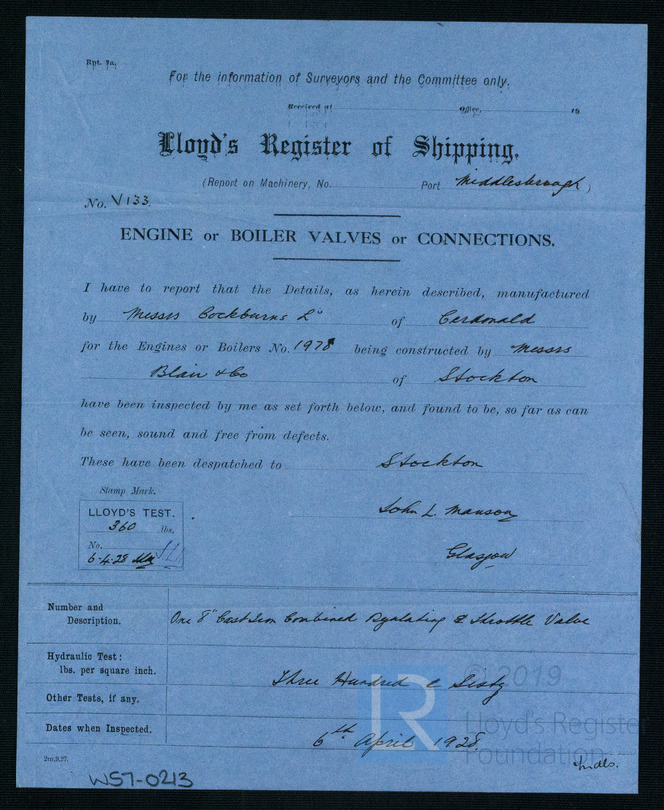 Rpt. 7a.
For the information of Surveyors and the Committee only.
Received at Office, 19
Lloyd's Register of Shipping.
(Report on Machinery, No. Port Middlesbrough)
No. V133
ENGINE or BOILER VALVES or CONNECTIONS.
I have to report that the Details, as herein described, manufactured
by Messrs Cockburns Ld of Cardonald
for the Engines or Boilers No. 1978 being constructed by Messrs
Blair & Co of Stockton
have been inspected by me as set forth below, and found to be, so far as can
be seen, sound and free from defects.
These have been despatched to Stockton
Stamp Mark.
LLOYD'S TEST.
360 lbs.
No.
6-4-28
John L. Manson
Glasgow
Number and Description. One 8" Cast Iron Combined Regulating & Throttle Valve
Hydraulic Test: lbs. per square inch. Three Hundred & Sixty
Other Tests, if any.
Dates when Inspected. 6th April 1928.
2m,9,27.
Mdb.
W57-0213
© 2019
Lloyd's Register
Foundation